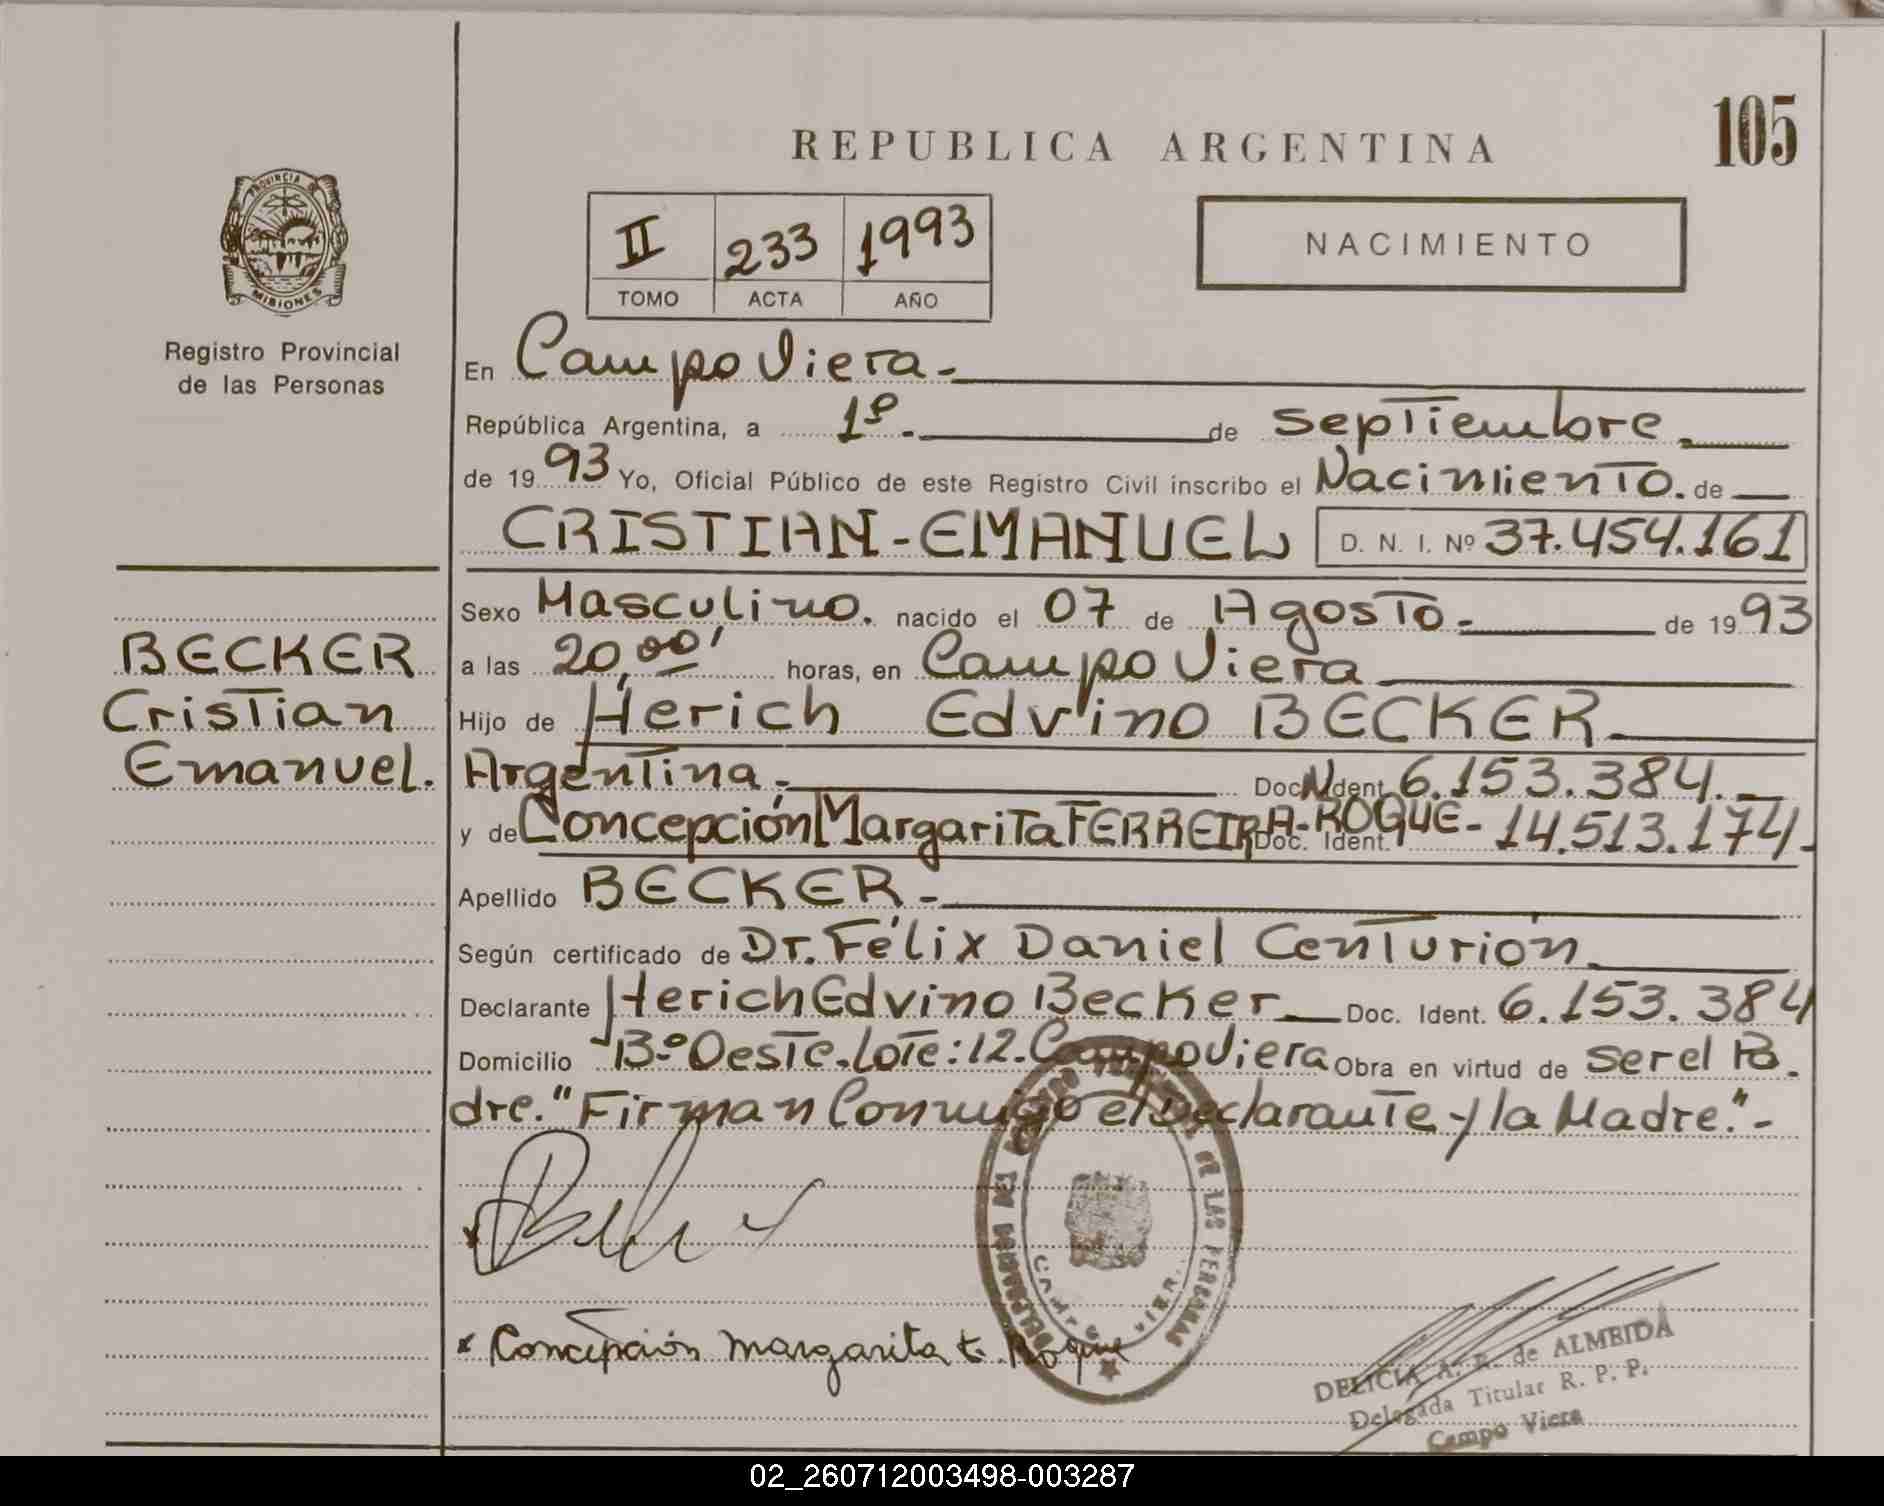 105
REPUBLICA ARGENTINA
PROVINCIA DE
MISIONES
Registro Provincial
de las Personas
II 233 1993
TOMO ACTA AÑO
NACIMIENTO
En Campo Viera.-
República Argentina, a 1º.- de septiembre.
de 1993 Yo, Oficial Público de este Registro Civil inscribo el Nacimiento. de
CRISTIAN-EMANUEL D. N. I. Nº 37.454.161
BECKER
Cristian
Emanuel.
Sexo Masculino. nacido el 07 de Agosto.- de 1993
a las 20,00' horas, en Campo Viera
Hijo de Herich Edvino BECKER.
Argentina.- Doc. Ident. 6.153.384.-
y de Concepción Margarita FERREIRA-ROQUE- Doc. Ident. 14.513.174.-
Apellido BECKER.-
Según certificado de Dr. Félix Daniel Centurión.
Declarante Herich Edvino Becker Doc. Ident. 6.153.384
Domicilio 13º Oeste. Lote: 12. Campo Viera Obra en virtud de ser el Pa-
dre. "Firman Conmigo el Declarante y la Madre".-
x Concepción Margarita f. Roque
DE LAS PERSONAS
CAMPO VIERA
DELICIA A. R. de ALMEIDA
Delegada Titular R. P. P.
Campo Viera
02_260712003498-003287